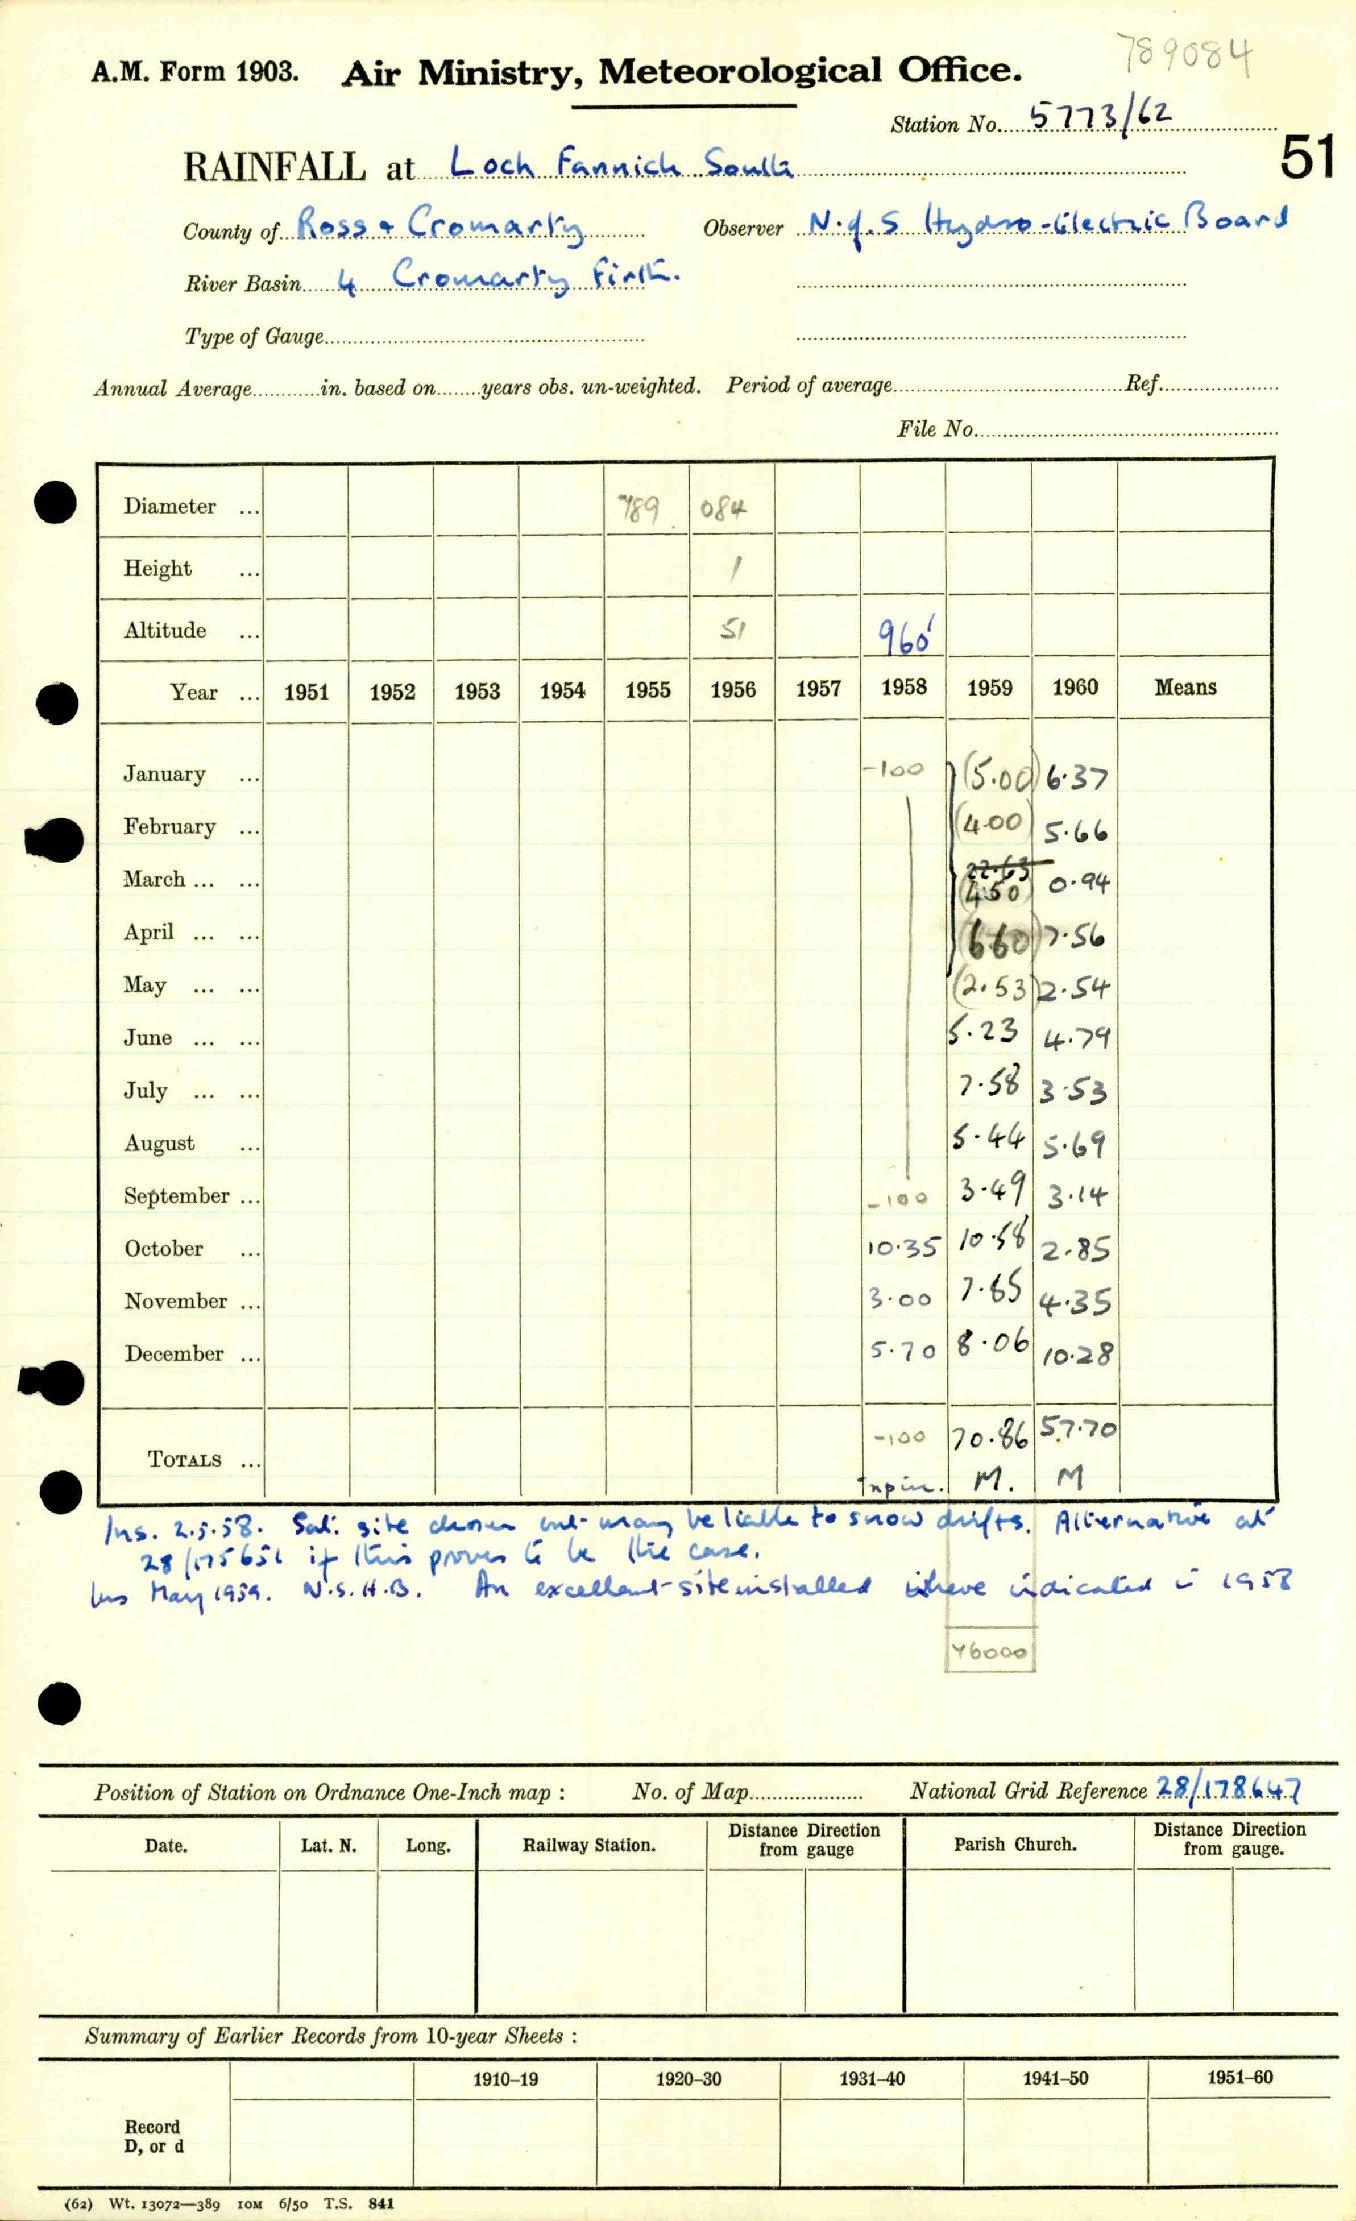 789084
A.M. Form 1903. Air Ministry, Meteorological Office.
Station No. 5773/62
51
RAINFALL at Loch Fannich South
County of Ross & Cromarty Observer N. of. S Hydro-Electric Board
River Basin 4 Cromarty Firth.
Type of Gauge
Annual Average in. based on years obs. un-weighted. Period of average Ref.
File No.
Diameter ... 789 084
Height ... 1
Altitude ... 51 960'
Year ... 1951 1952 1953 1954 1955 1956 1957 1958 1959 1960 Means
January ... -100 (5.00) 6.37
February ... (4.00) 5.66
March ... ... 22.63 (4.50) 0.94
April ... ... (6.60) 7.56
May ... ... (2.53) 2.54
June ... ... 5.23 4.79
July ... ... 7.58 3.53
August ... 5.44 5.69
September ... -100 3.49 3.14
October ... 10.35 10.58 2.85
November ... 3.00 7.85 4.35
December ... 5.70 8.06 10.28
TOTALS ... -100 70.86 57.70
M. M
Ins. 2.5.58. Sat. site chosen but may be liable to snow drifts. Alternative at
28/175651 if this proves to be the case.
Ins May 1959. N.S.H.B. An excellent site installed where indicated in 1958
46000
Position of Station on Ordnance One-Inch map : No. of Map National Grid Reference 28/178647
Date. Lat. N. Long. Railway Station. Distance from gauge Direction Parish Church. Distance from gauge. Direction
Summary of Earlier Records from 10-year Sheets :
1910–19 1920–30 1931–40 1941–50 1951–60
Record
D, or d
(62) Wt. 13072—389 10M 6/50 T.S. 841